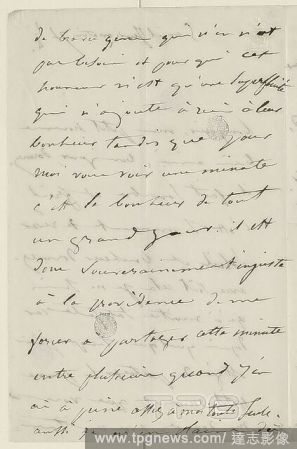 de braves gens qui n'en n'ont
pas besoin et pour qui cet
honneur n'est qu'une superfluité
qui n'ajoute à rien à leur
bonheur tandis que pour
moi vous voir une minute
c'est le bonheur de tout
un grand jour. il est
donc souverainement injuste
à la providence de me
forcer à partager cette minute
entre plusieurs quand j'en
ai à peine assez à moi toute seule.
aussi
www.tpgnews.com/ 達志影像